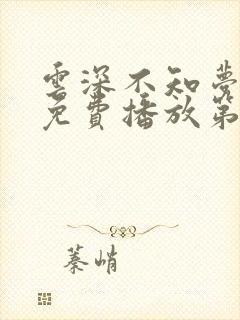 雲深不知夢
免費播放第
蓁峭